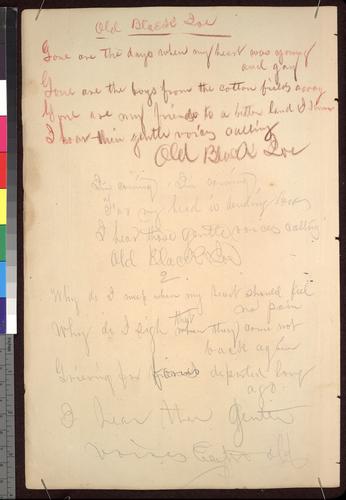 Old Black Joe
Gone are the days when my heart was young
and gay
Gone are the boys from the cotton fields away
Gone are my friends to a better land I know
I hear their gentle voices calling
Old Black Joe
I'm coming, I'm coming,
For my head is bending low
I hear those gentle voices calling
Old Black Joe
2
"Why do I weep when my heart should feel
no pain
Why do I sigh that when they come not
back again
Grieving for friends departed long
ago.
I hear ther gentle
voises old